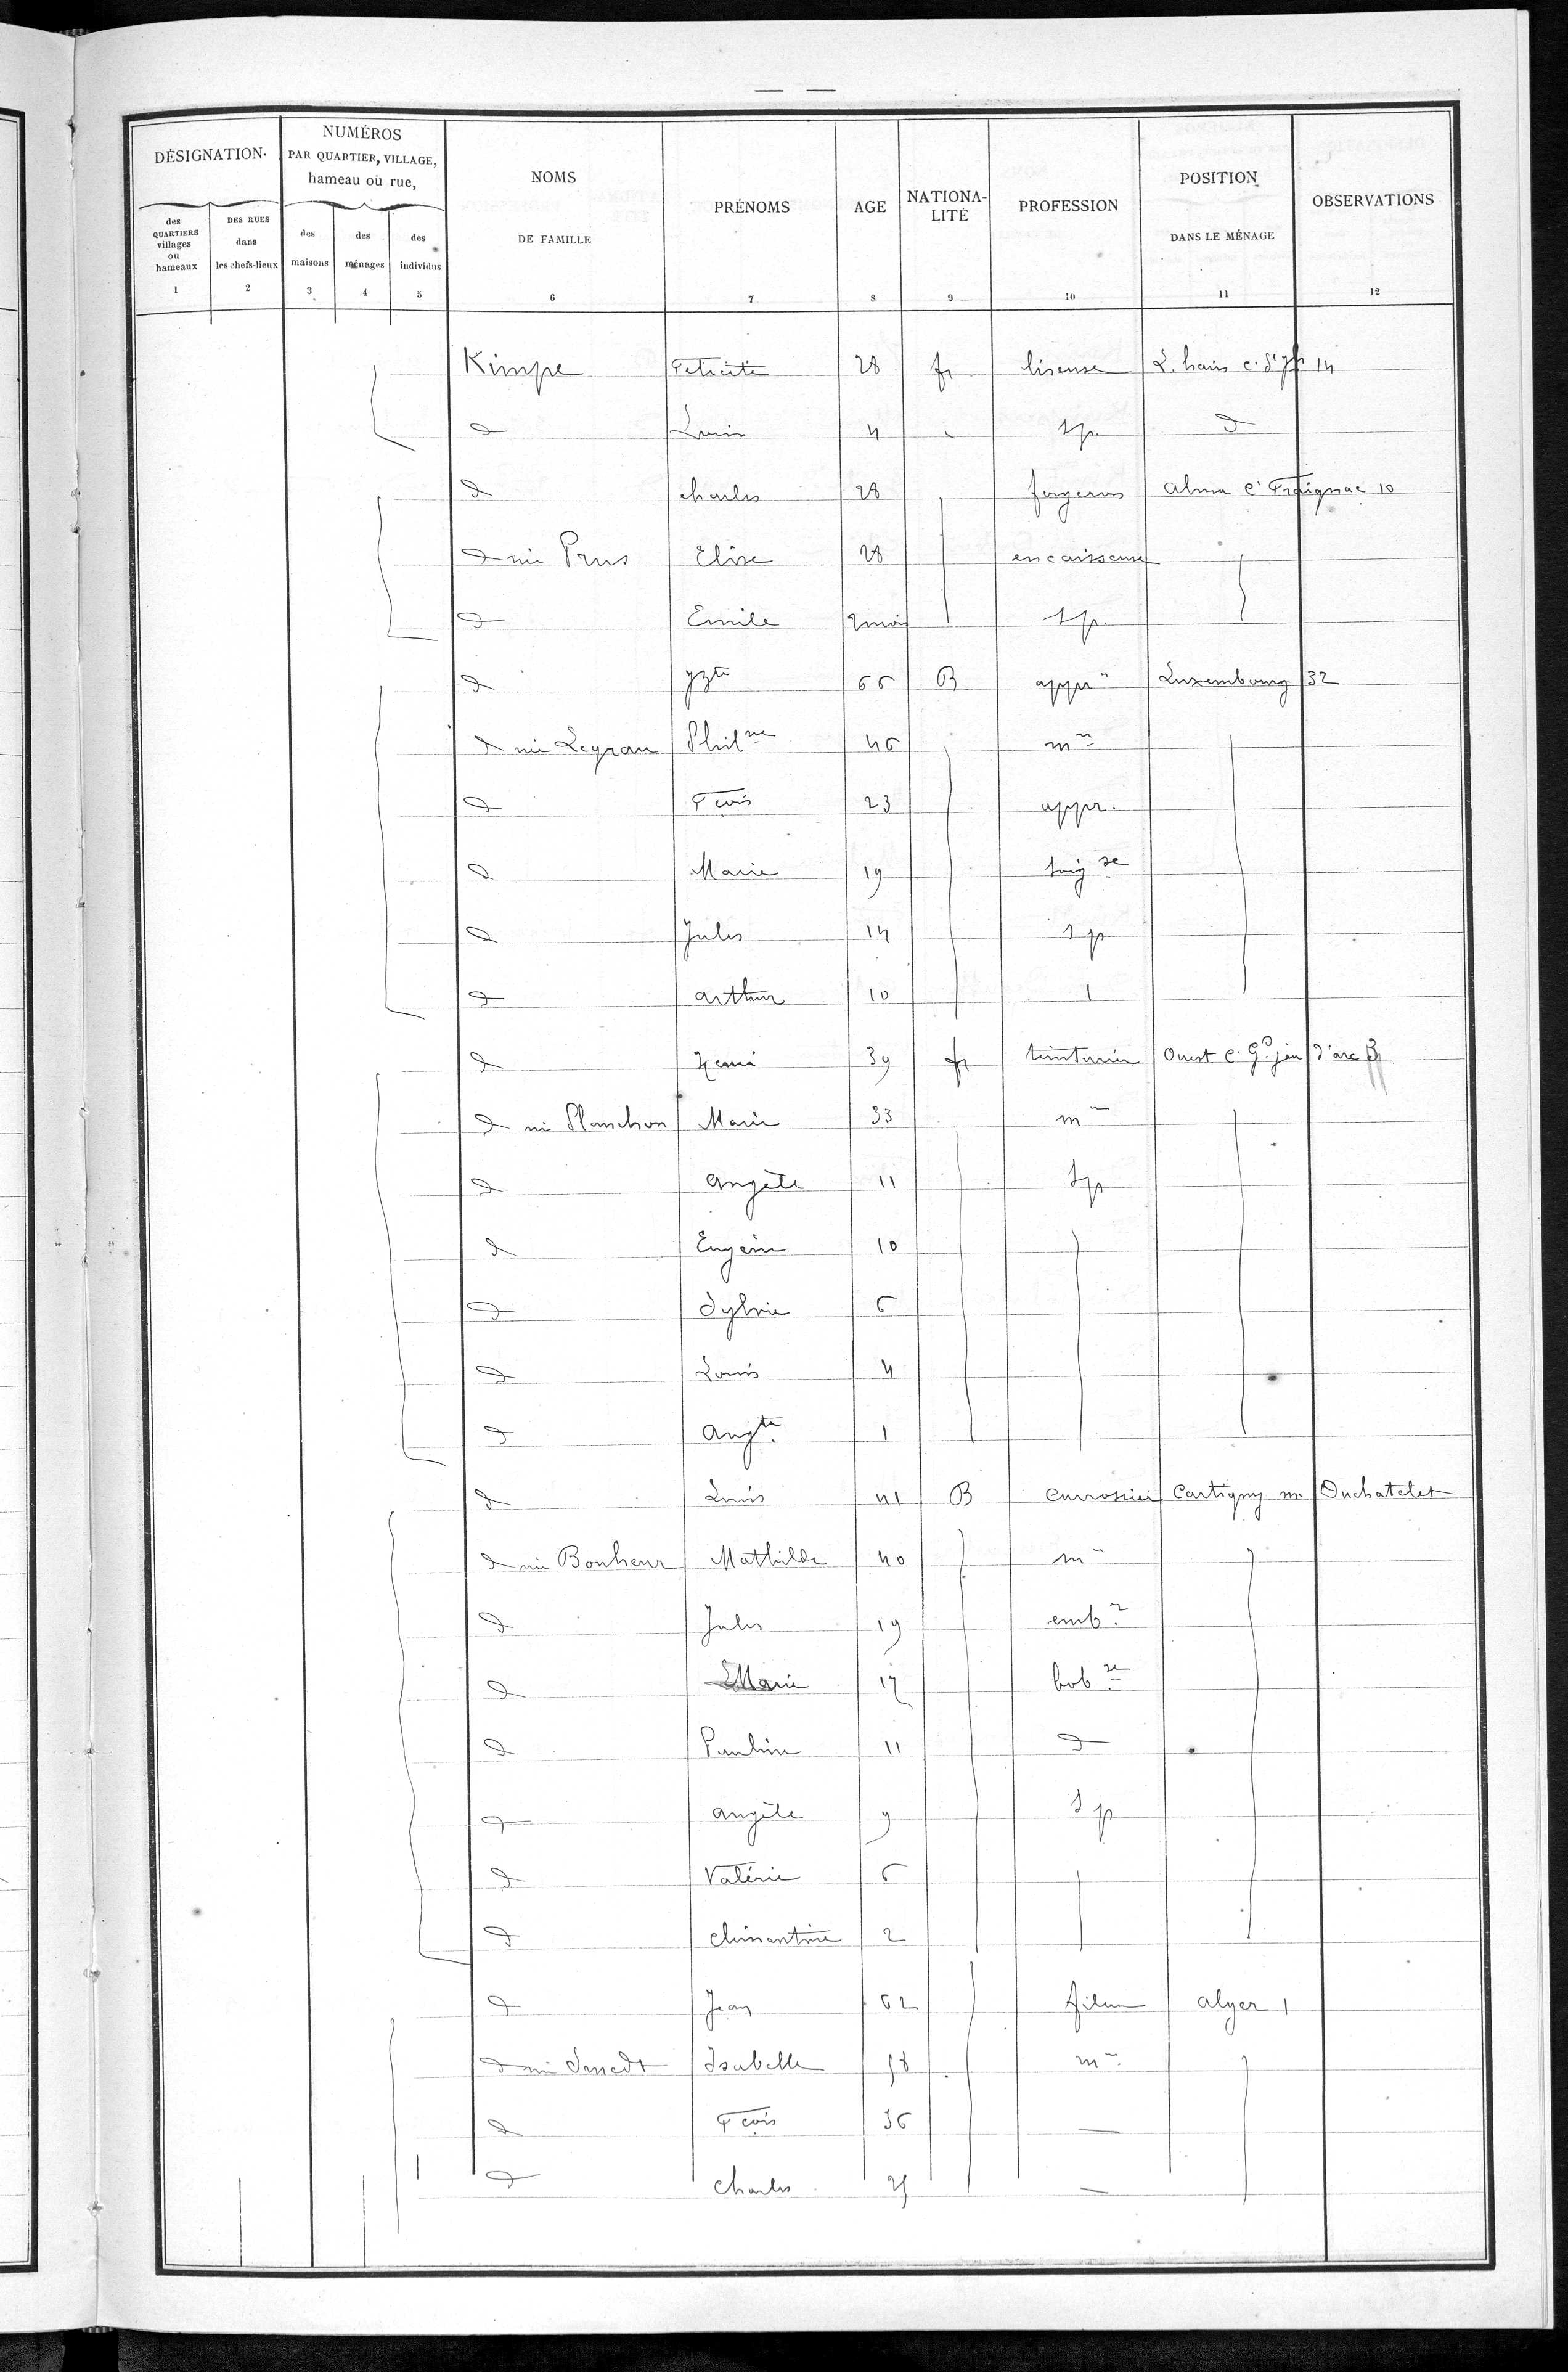 DÉSIGNATION.
NUMÉROS
PAR QUARTIER, VILLAGE,
hameau où rue,
des QUARTIERS villages ou hameaux
DES RUES dans les chefs-lieux
des maisons
des ménages
des individus
NOMS
DE FAMILLE
PRÉNOMS
AGE
NATIONA-
LITÉ
PROFESSION
POSITION
DANS LE MÉNAGE
OBSERVATIONS
1 2 3 4 5 6 7 8 9 10 11 12
Kimpe Félicité 28 fr liseuse L. hais c. 14
d Louis 4 sp. d
d charles 28 forgeron alma 10
d née Prus Elise 28 encaisseuse
d Emile 2 mois sp.
d yzte 66 B appr Luxembourg 32
d née Legrau Philne 46 mre
d Fçois 23 appr.
d Marie 19 soigse
d Jules 14 sp
d arthur 10
d Henri 39 fr teinturier Ouest c. Gd jea d'arc
d née Planchon Marie 33 m
d angèle 11 sp
d Eugénie 10
d Sylvie 6
d Louis 4
d Augte 1
d Louis 41 B carrossier Cartigny m. Duchatelet
d née Bonheur Mathilde 40 m
d Jules 19 embr
d Marie 17 bobse
d Pauline 11 d
d angèle 9 sp
d Valérie 6
d clémentine 2
d Jean 62 fileur alger 1
d née Smedt Isabelle 58 m
d Fçois 36 —
d charles 25 —